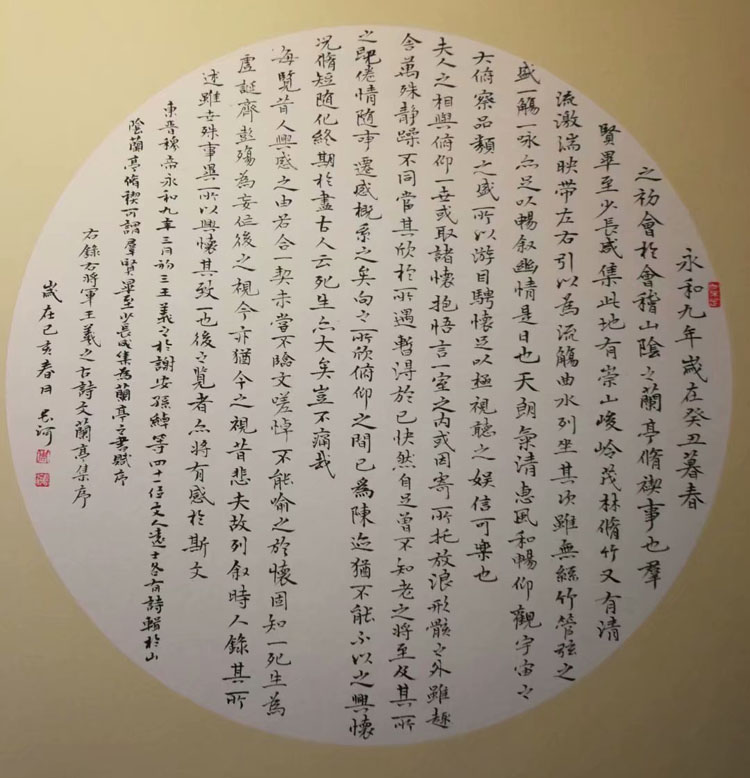 永和九年歲在癸丑暮春
之初會於會稽山陰之蘭亭脩禊事也群
賢畢至少長咸集此地有崇山峻嶺茂林脩竹又有清
流激湍映帶左右引以為流觴曲水列坐其次雖無絲竹管弦之
盛一觴一咏亦足以暢叙幽情是日也天朗氣清惠風和暢仰觀宇宙之
大俯察品類之盛所以游目騁懷足以極視聽之娱信可樂也
夫人之相與俯仰一世或取諸懷抱悟言一室之内或因寄所托放浪形骸之外雖趣
舍萬殊靜躁不同當其欣於所遇暫得於己快然自足曾不知老之將至及其所
之既倦情隨事遷感慨系之矣向之所欣俯仰之間已為陳迹猶不能不以之興懷
況脩短隨化終期於盡古人云死生亦大矣豈不痛哉
每覽昔人興感之由若合一契未嘗不臨文嗟悼不能喻之於懷固知一死生為
虛誕齊彭殤為妄作後之視今亦猶今之視昔悲夫故列叙時人錄其所
述雖世殊事異所以興懷其致一也後之覽者亦將有感於斯文
東晉穆帝永和九年三月初三王羲之於謝安孫綽等四十一位文人逸士各有詩輯於山
陰蘭亭脩禊可謂群賢畢至少長咸集為蘭亭之書賦序
右錄右將軍王羲之古詩文蘭亭集序
歲在己亥春月